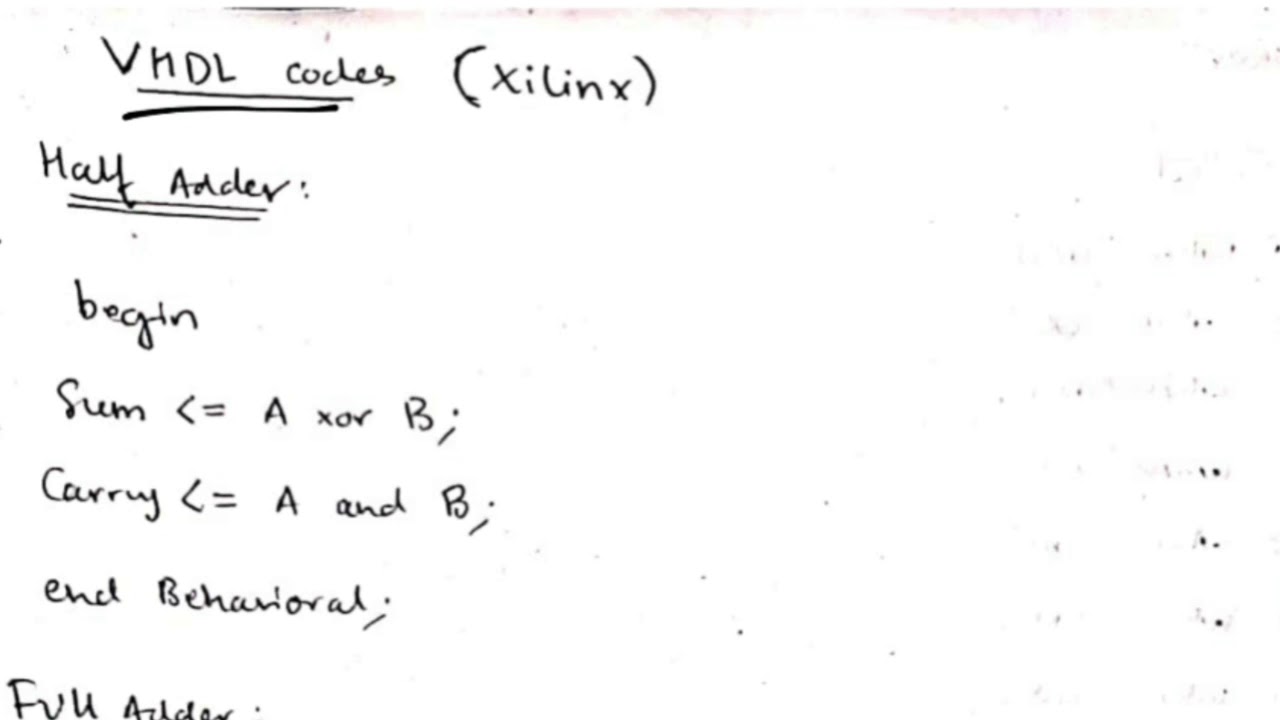 VHDL codes (Xilinx)
Half Adder:
begin
Sum <= A xor B;
Carry <= A and B;
end Behavioral;
Full Adder: